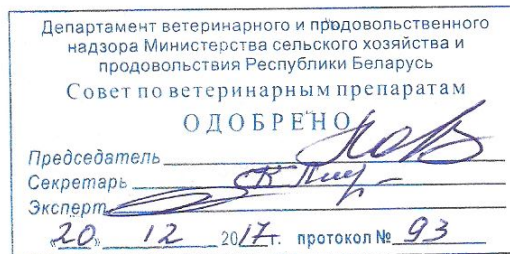 Департамент ветеринарного и продовольственного
надзора Министерства сельского хозяйства и
продовольствия Республики Беларусь
Совет по ветеринарным препаратам
ОДОБРЕНО
Председатель
Секретарь
Эксперт
"20" 12 2017 г. протокол № 93